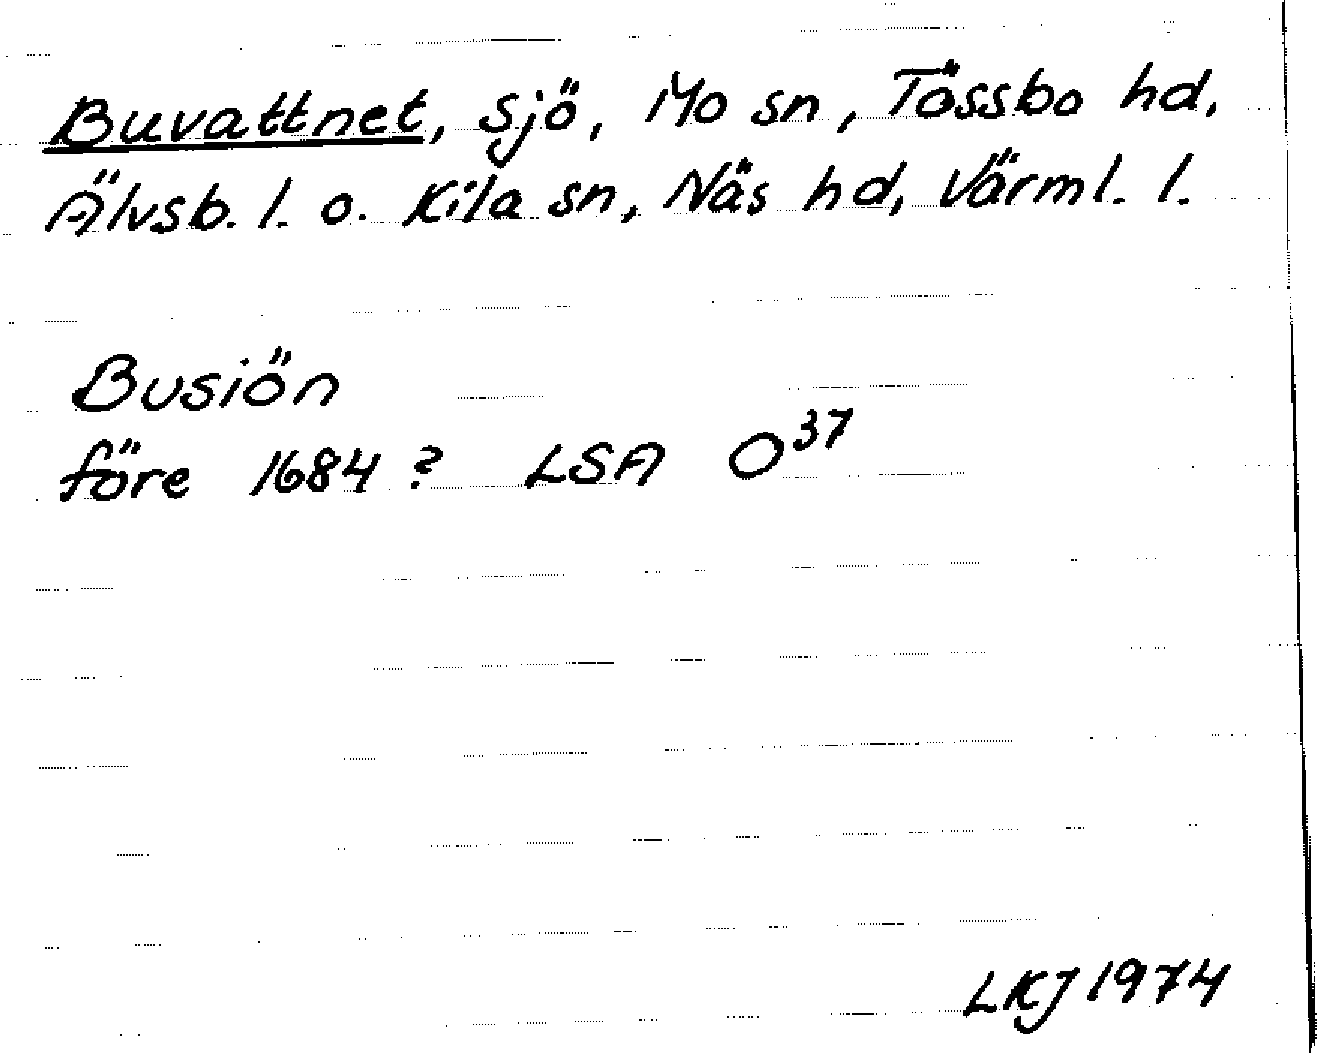 Buvattnet, sjö, Mo sn, Tössbo hd,
Älvsb. l. o. Kila sn, Näs hd, Värml. l.
Busiön
före 1684? LSA O³⁷
LKJ 1974